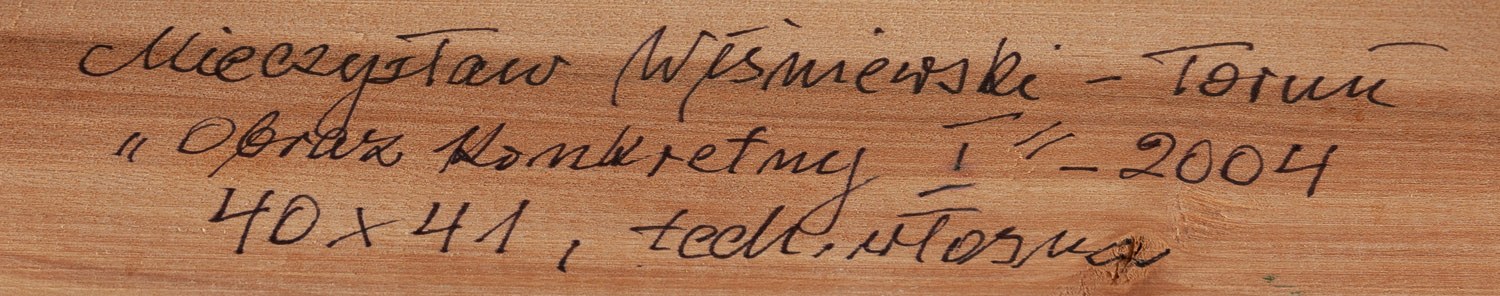 Mieczysław Wiśniewski - Toruń
„Obraz konkretny I" - 2004
40 x 41, tech. własna